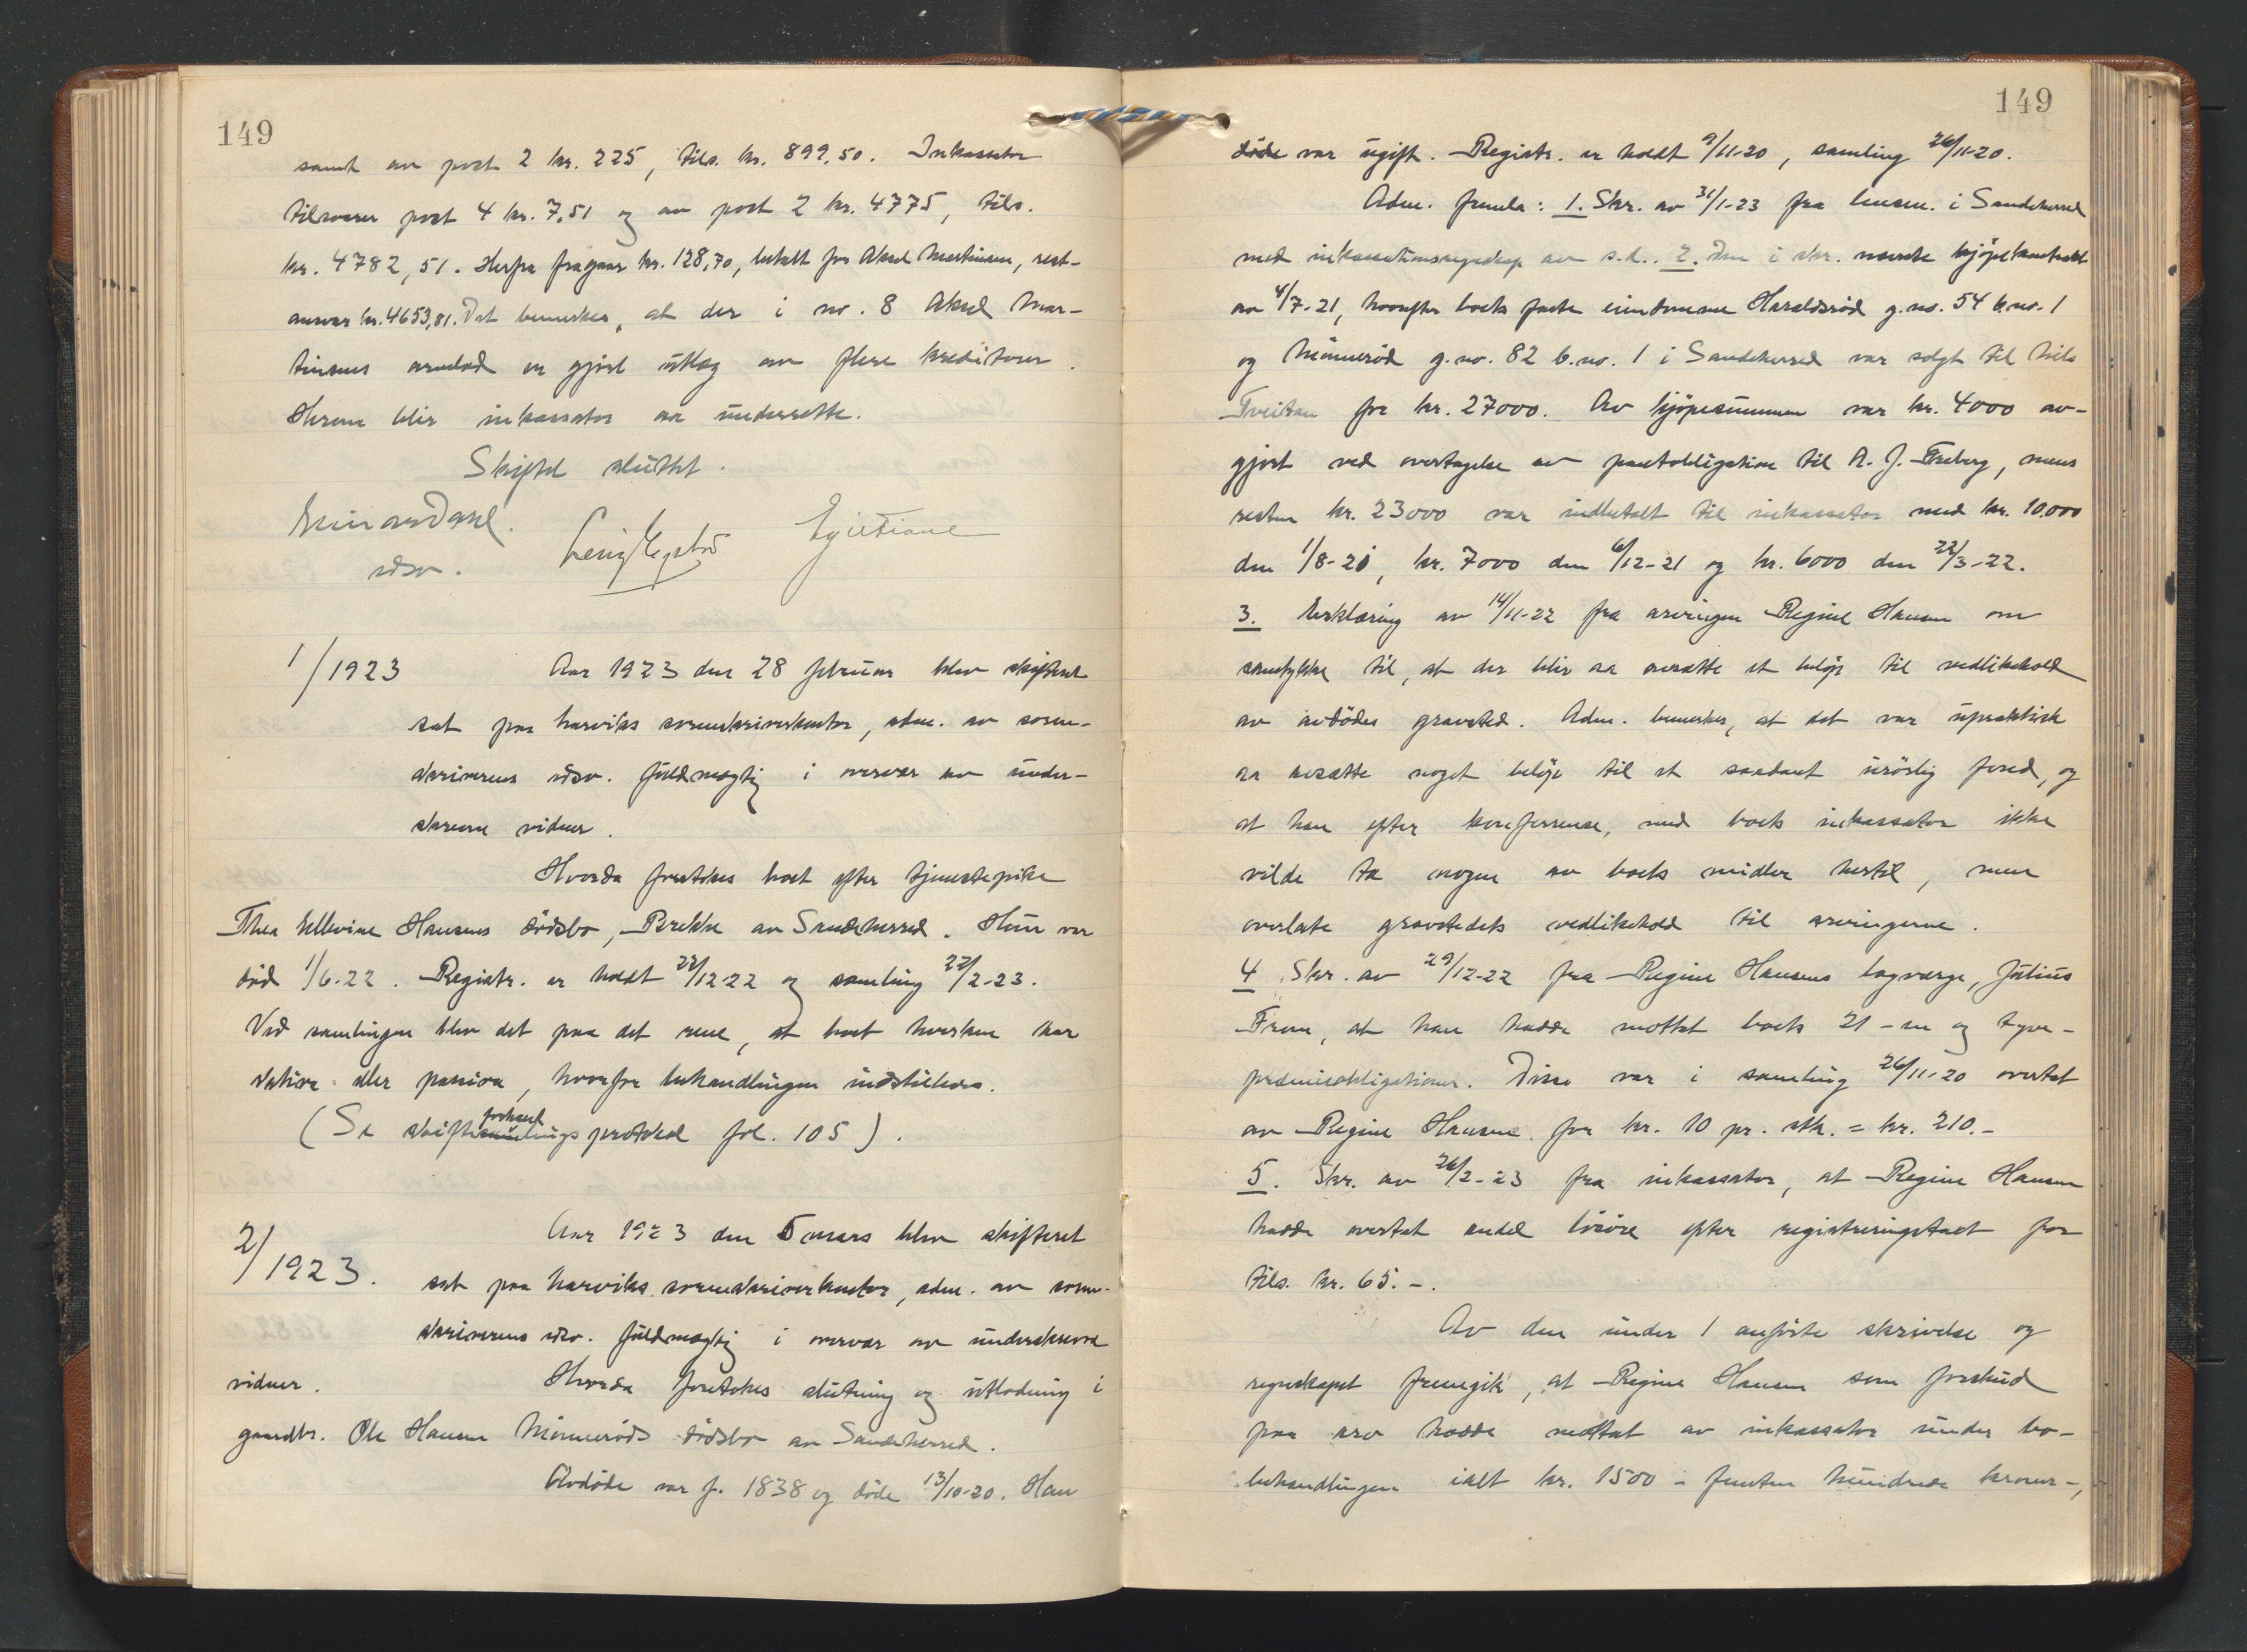 149
samt av post 2 kr. 225, tils. kr. 899,50. Inkassator
tilsvarer post 4 kr. 7,51 og av post 2 kr. 4775, tils.
kr. 4782,51. Herfra fragaar kr. 128,70, betalt for Aksel Martinsen, rest-
ansvar kr. 4653,81. Det bemerkes, at der i no. 8 Aksel Mar-
tinsens arvelod er gjort utlæg av flere kreditorer.
Herom blir inkassator aa underrette.
Skiftet sluttet.
Einar Dahl.
1/1923
Aar 1923 den 28 februar blev skifteret
sat paa Larviks sorenskriverkontor, adm. av soren-
skriverens edsv. fuldmægtig i overvær av under-
skrevne vidner.
Hvorda foretokes boet efter tjenestepike
Thea Ellevine Hansens dödsbo, Brekke av Sandeherred. Hun var
död 1/6-22. Registr. er holdt 22/12-22 og samling 22/2-23.
Ved samlingen blev det paa det rene, at boet hverken har
aktiva eller passiva, hvorfor behandlingen indstilledes.
(Se skifteforhandlingsprotokol fol. 105).
2/1923.
Aar 1923 den 5 mars blev skifteret
sat paa Larviks sorenskriverkontor, adm. av soren-
skriverens edsv. fuldmægtig i overvær av underskrevne
vidner. Hvorda foretokes slutning og utlodning i
gaardbr. Ole Hansen Mönneröds dödsbo av Sandeherred.
Avdöde var f. 1838 og döde 13/10-20. Han
149
döde var ugift. Registr. er holdt 9/11-20, samling 26/11-20.
Adm. fremla: 1. Skr. av 31/1-23 fra lensm. i Sandeherred
med inkassationsregnskap av s.d.. 2. Den i skr. nævnte kjöpekontrakt
av 4/7-21, hvorefter boets faste eiendomme Haraldsröd g.no. 54 b.no. 1
og Mönneröd g.no. 82 b.no. 1 i Sandeherred var solgt til Nils
Tveitan for kr. 27000. Av kjöpesummen var kr. 4000 av-
gjort ved overtagelse av pantobligation til A. J. Freberg, mens
resten kr. 23000 var indbetalt til inkassator med kr. 10.000
den 1/8-21, kr. 7000 den 6/12-21 og kr. 6000 den 22/3-22.
3. Erklæring av 14/11-22 fra arvingen Regine Hansen om
samtykke til, at der blir aa avsætte et belöp til vedlikehold
av avdödes gravsted. Adm. bemerker, at det var upraktisk
aa avsætte noget belöp til et saadant urörlig fond, og
at han efter konferense, med boets inkassator ikke
vilde ta nogen av boets midler hertil, men
overlate gravstedets vedlikehold til arvingerne.
4 Skr. av 29/12-22 fra Regine Hansens lagværge, Julius
Frem, at han hadde mottat boets 21 - en og tyve -
præmieobligationer. Disse var i samling 26/11-20 overtat
av Regine Hansen for kr. 10 pr. stk. = kr. 210.-
5. Skr. av 26/2-23 fra inkassator, at Regine Hansen
hadde overtat endel lösöre efter registreringstakst for
tils. kr. 65.-.
Av den under 1 anförte skrivelse og
regnskapet fremgik, at Regine Hansen som forskud
paa arv hadde mottat av inkassator under bo-
behandlingen ialt kr. 1500 - femten hundrede kroner -,